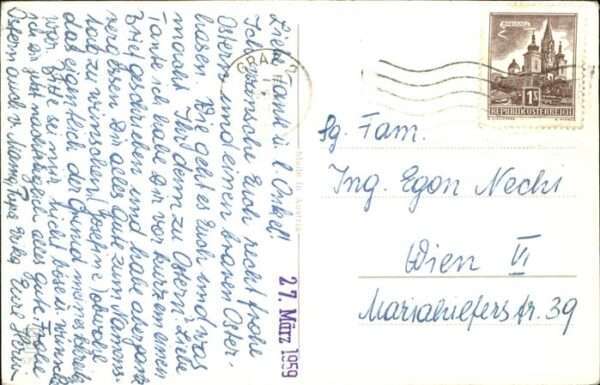 Liebe Tante u. l. Onkel!
Ich wünsche Euch recht frohe
Ostern und einen braven Oster-
hasen. Wie geht es Euch und was
macht Ihr denn zu Ostern? Liebe
Tante ich habe Dir vor kurzem einen
Brief geschrieben und habe da ganz
vergessen Dir alles Gute zum Namens-
tag zu wünschen (Josefine) obwohl
das eigentlich der Grund meines Schreib.
war. Bitte sei mir nicht böse u. wünsche
ich Dir jetzt nachträglich alles Gute. Frohe
Ostern auch v. Mama, Papa, Erika Eure
GRAZ 2
Made in Austria
27. März 1959
MARIAZELL
1S
REPUBLIK ÖSTERREICH
Fam.
Ing. Egon
Wien VI
Mariahilferstr. 39